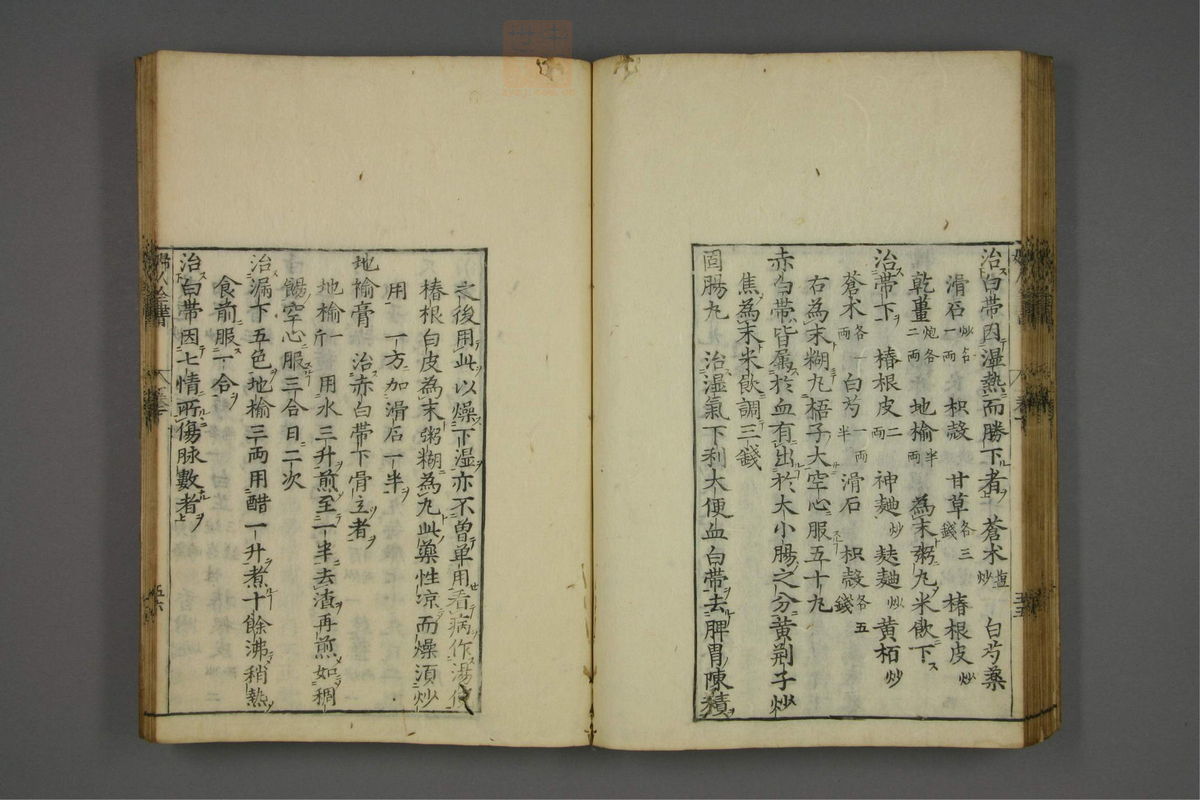 治白帯因湿熱而勝下者 蒼术塩炒 白芍薬
滑石炒一両 枳殻 甘草各三錢 椿根皮炒
乾薑炮各二両 地榆半両 為末粥丸米飲下
治帯下 椿根皮二両 神麯炒 麸麯炒 黄栢炒
蒼术各一両 白芍一両半 滑石 枳殻各五錢
右為末糊丸梧子大空心服五十丸
赤白帯皆属於血有出於大小腸之分黄荊子炒
焦為末米飲調三錢
固腸丸 治湿氣下利大便血白帯去脾胃陳積
之後用此以燥下湿亦不曽单用看病作湯
椿根白皮為末粥糊為丸此藥性凉而燥須炒
用 一方加滑石一半
地榆膏 治赤白帯下骨立者
地榆一斤 用水三升煎至一半去渣再煎如稠
餳空心服三合日二次
治漏下五色地榆三両用醋一升煮十餘沸稍熱
食前服一合
治白帯因七情所傷脉數者